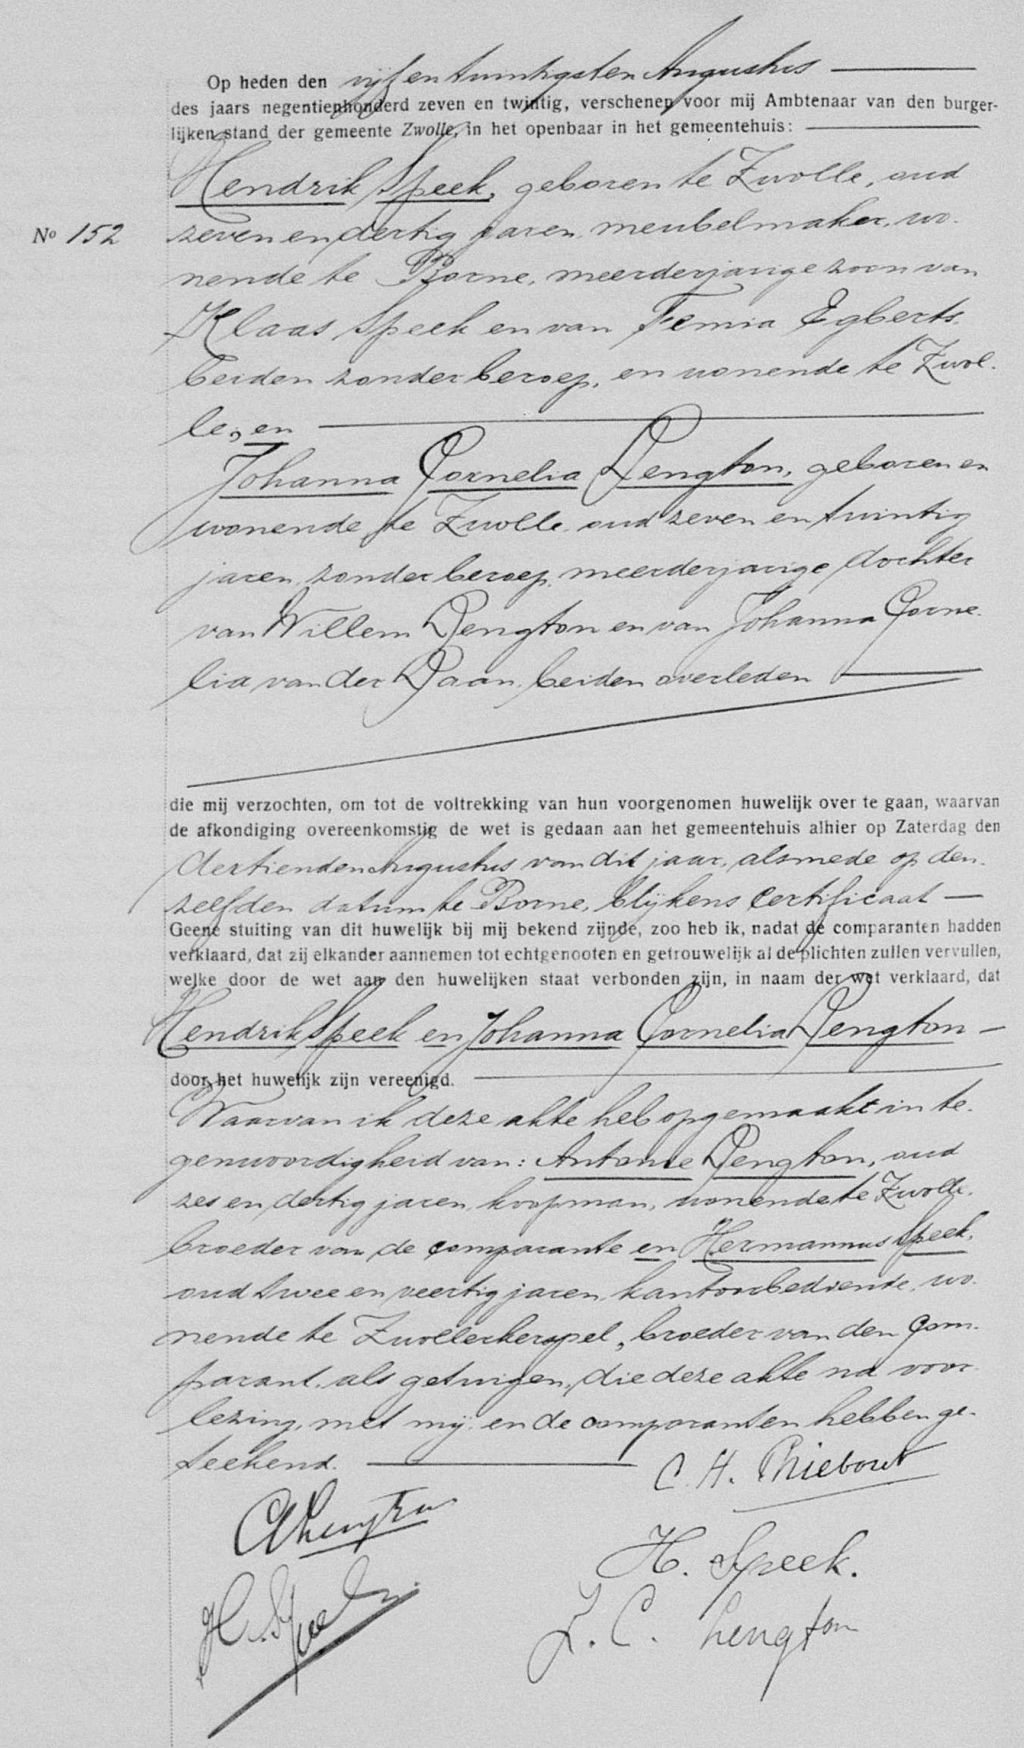 Op heden den vijf en twintigsten Augustus
des jaars negentienhonderd zeven en twintig, verschenen voor mij Ambtenaar van den burger-
lijken stand der gemeente Zwolle, in het openbaar in het gemeentehuis:
Hendrik Speek, geboren te Zwolle, oud
No 152 zeven en dertig jaren, meubelmaker, wo-
nende te Borne, meerderjarige zoon van
Klaas Speek en van Femia Egberts,
beiden zonder beroep, en wonende te Zwol-
le, en
Johanna Cornelia Lengton, geboren en
wonende te Zwolle, oud zeven en twintig
jaren, zonder beroep, meerderjarige dochter
van Willem Lengton en van Johanna Corne-
lia van der Laan, beiden overleden
die mij verzochten, om tot de voltrekking van hun voorgenomen huwelijk over te gaan, waarvan
de afkondiging overeenkomstig de wet is gedaan aan het gemeentehuis alhier op Zaterdag den
dertienden Augustus van dit jaar, alsmede op den-
zelfden datum te Borne, blijkens certificaat
Geene stuiting van dit huwelijk bij mij bekend zijnde, zoo heb ik, nadat de comparanten hadden
verklaard, dat zij elkander aannemen tot echtgenooten en getrouwelijk al de plichten zullen vervullen,
welke door de wet aan den huwelijken staat verbonden zijn, in naam der wet verklaard, dat
Hendrik Speek en Johanna Cornelia Lengton
door het huwelijk zijn vereenigd.
Waarvan ik deze akte heb opgemaakt in te-
genwoordigheid van: Antonie Lengton, oud
zes en dertig jaren, koopman, wonende te Zwolle,
broeder van de comparante en Hermannus Speek,
oud twee en veertig jaren, kantoorbediende, wo-
nende te Zwollerkerspel, broeder van den com-
parant, als getuigen, die deze akte na voor-
lezing, met mij en de comparanten hebben ge-
teekend.
C. H. Thiebout
A Lengton
H. Speek.
H. Speek
J. C. Lengton